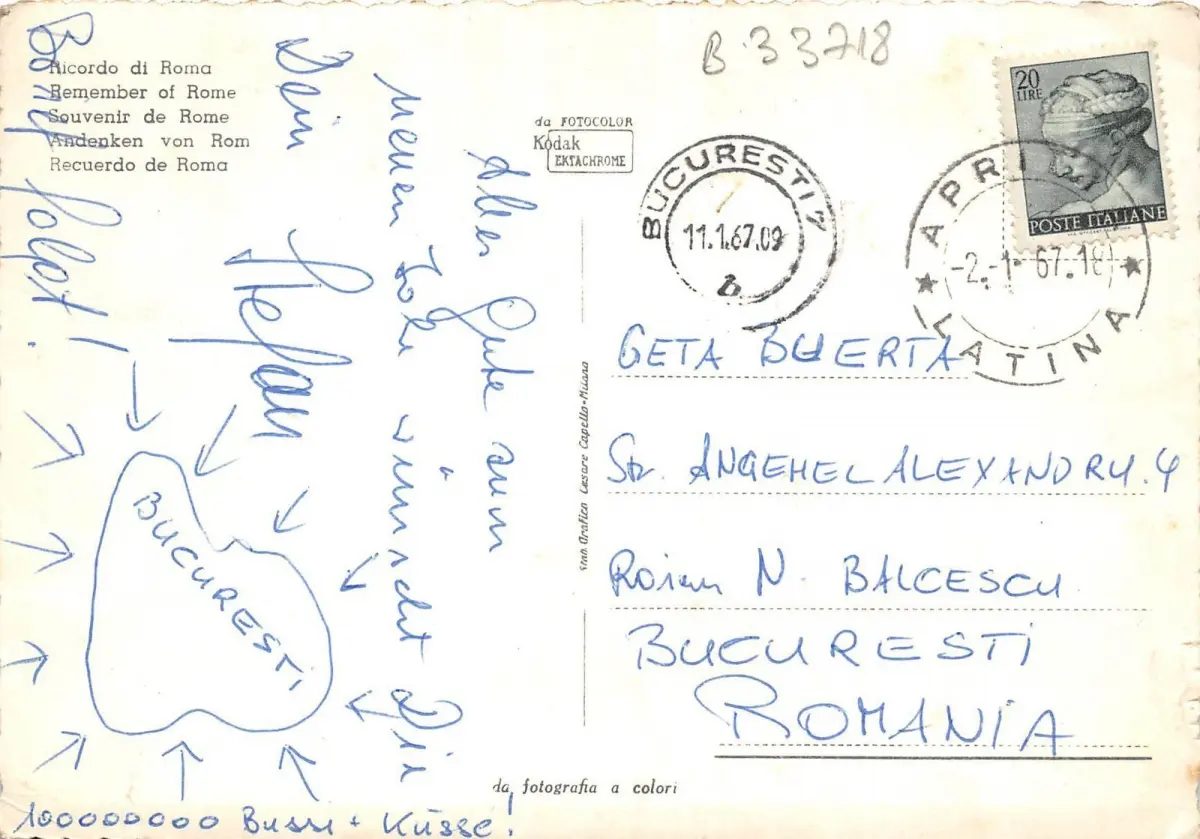 B 33718
Ricordo di Roma
Remember of Rome
Souvenir de Rome
Andenken von Rom
Recuerdo de Roma
da FOTOCOLOR
Kodak
EKTACHROME
20
LIRE
POSTE ITALIANE
BUCURESTI 7
11.1.67.09
b
★ APRILIA ★
-2.-1-67.18
LATINA
Alles Gute zum
neuen Jahr wünscht Dir
Dein Stefan
Brief folgt!
BUCURESTI
100000000 Bussi + Küsse!
Stab. Grafico Cesare Capello-Milano
GETA BUERTA
Str. ANGEHEL ALEXANDRU. 4
Roian N. BALCESCU
BUCURESTI
ROMANIA
da fotografia a colori